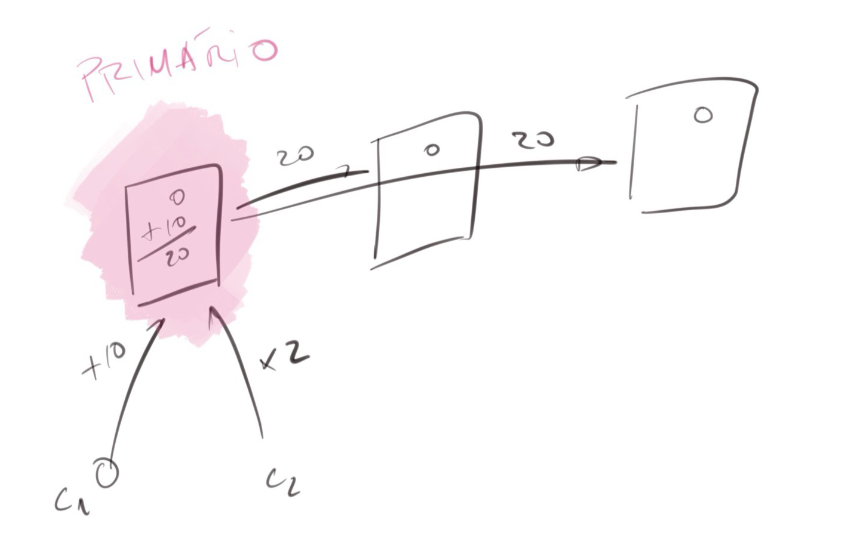 PRIMÁRIO
0
+10
20
20
0
20
0
+10
x2
C1
C2